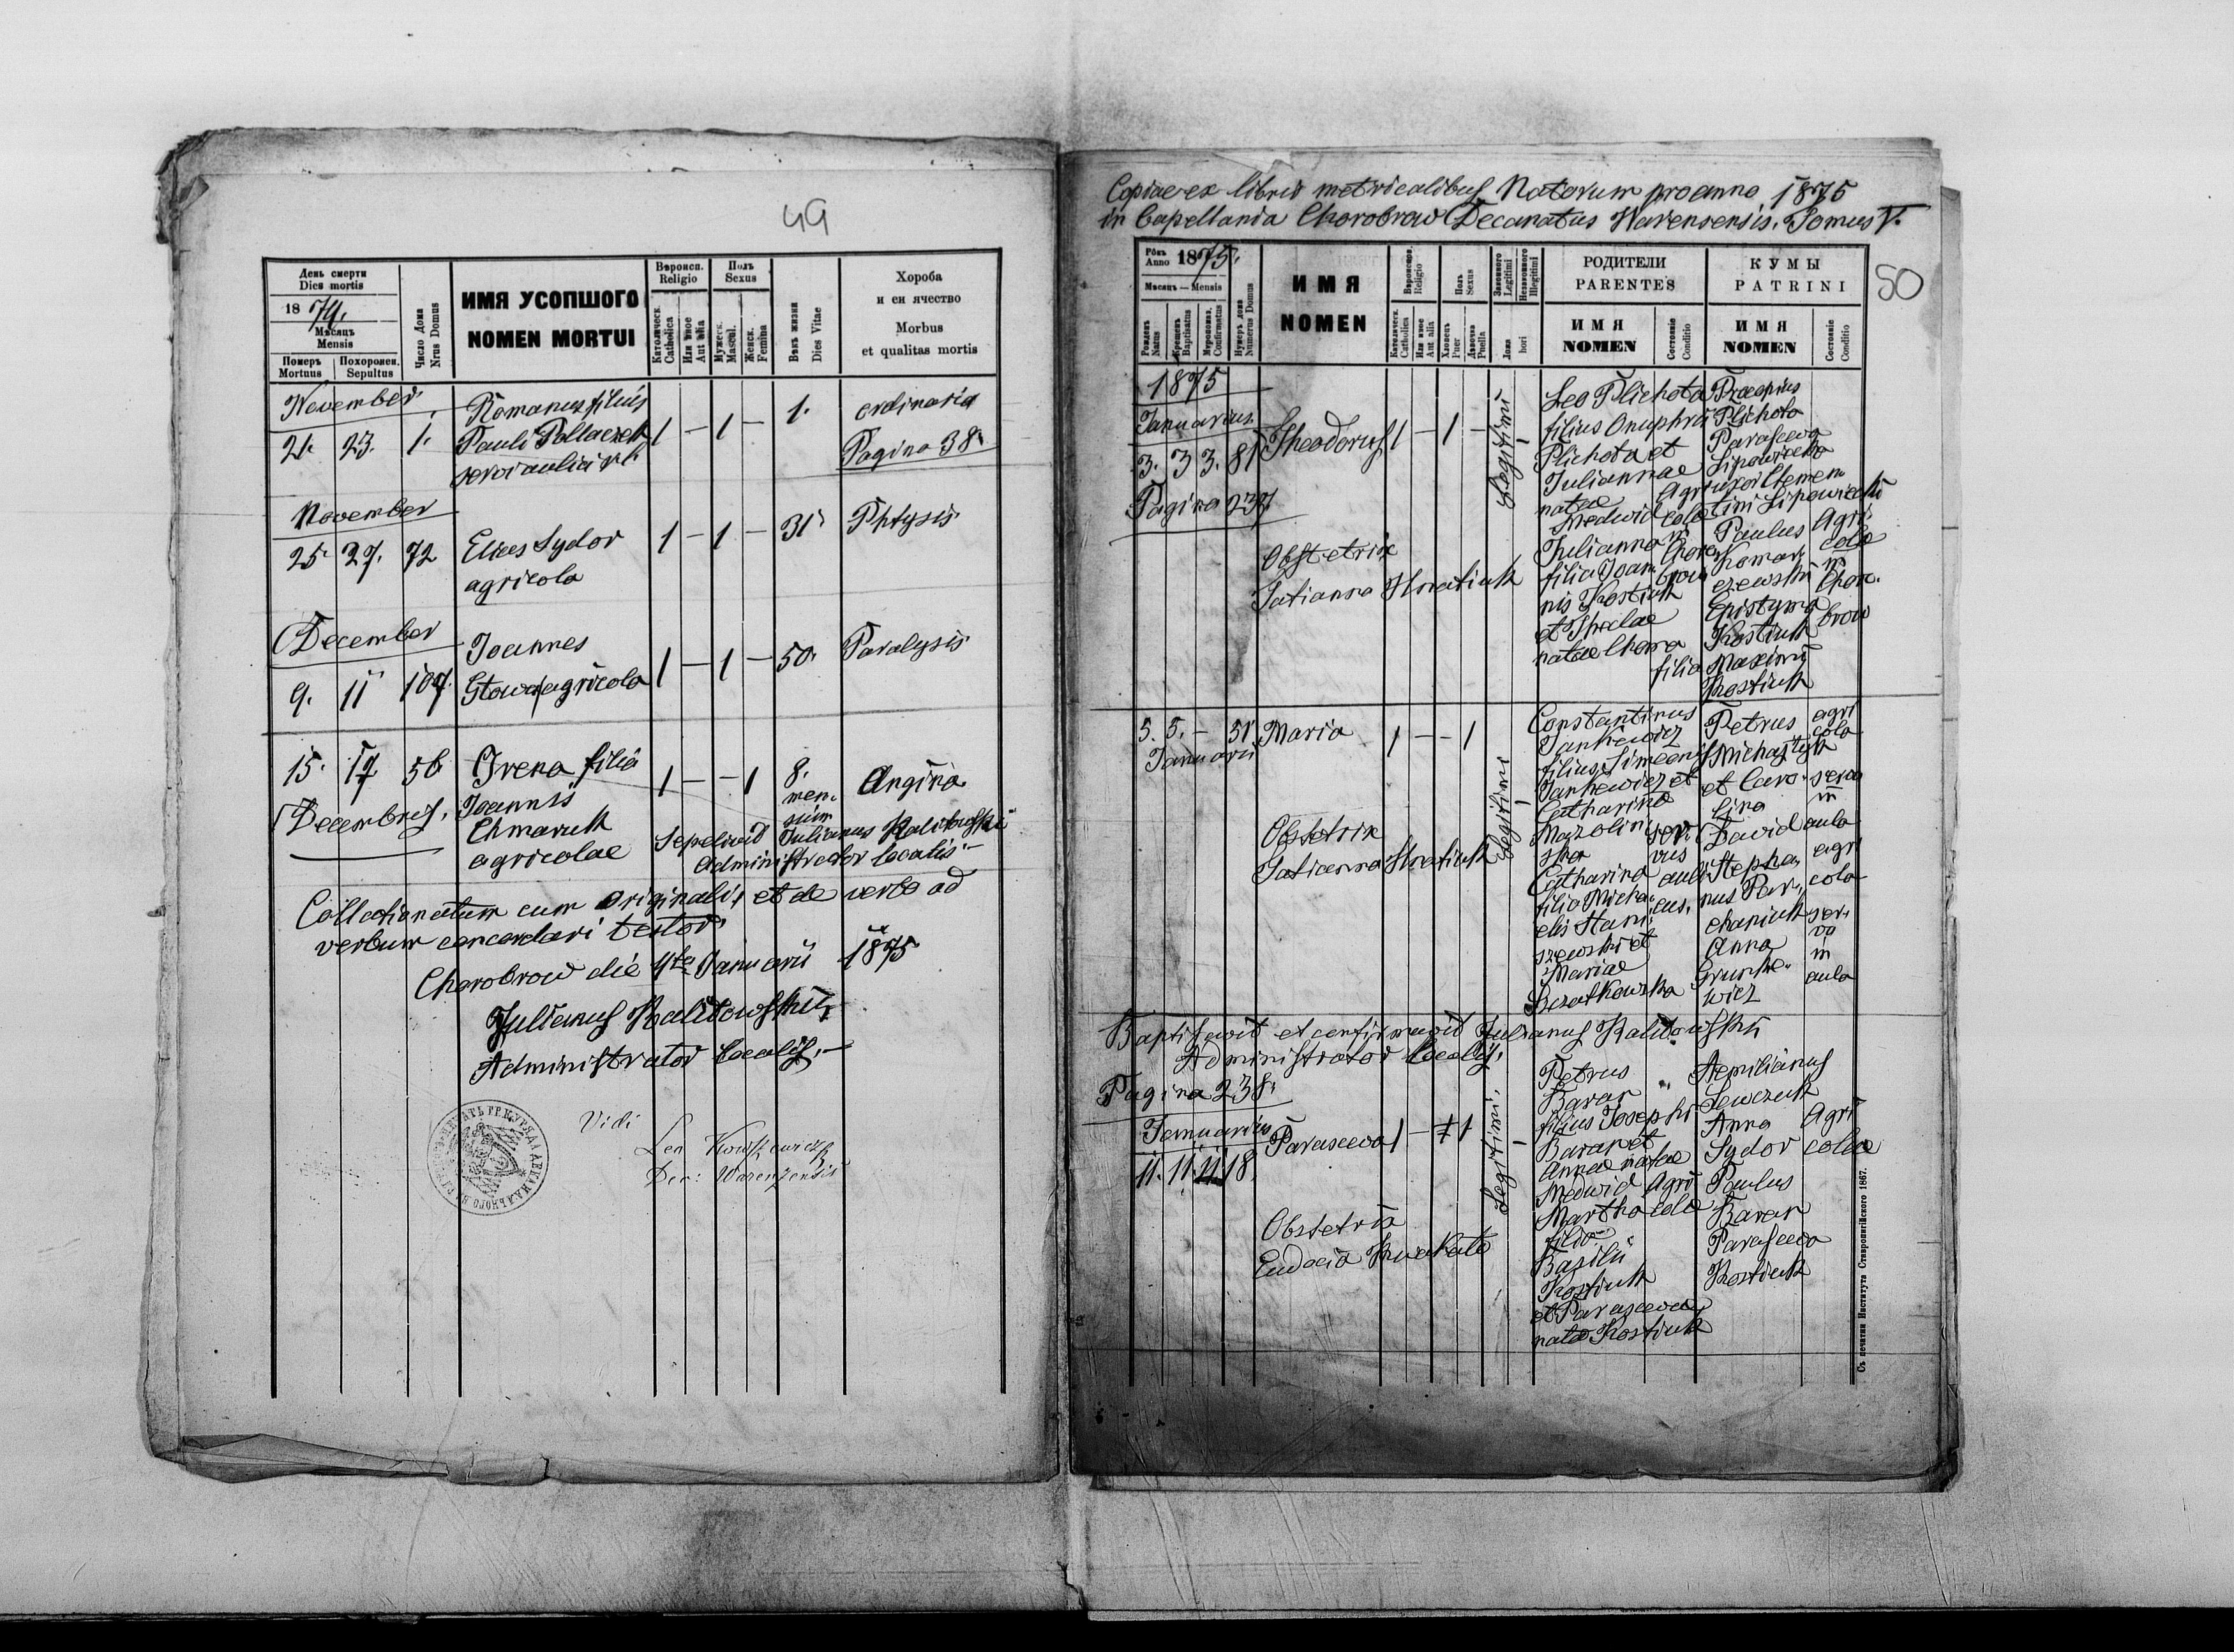 49
День смерти
Dies mortis
1874.
Мѣсяцъ
Mensis
Померъ
Mortuus
Похоронен.
Sepultus
Число Дома
Nrus Domus
ИМЯ УСОПШОГО
NOMEN MORTUI
Вѣроисп.
Religio
Католическ.
Catholica
Или иное
Aut alia
Полъ
Sexus
Мужеск.
Mascul.
Женск.
Femina
Вѣкъ жизни
Dies Vitae
Хороба
и еи ячество
Morbus
et qualitas mortis
November
21. 23. 1. Romanus filius
Pauli Pollaczek
servi aulici
1 – 1 – 1. ordinaria
Pagina 38.
November
25. 27. 72 Elias Sydor
agricola
1 – 1 – 31 Phtysis
December
9. 11 107. Joannes
Stowa agricola
1 – 1 – 50. Paralysis
15. 17 56 Irena filia
Decembris, Joannis
Chmaruk
agricolae
1 – – 1 8.
men
sium
Angina
Sepelivit Julianus Kalitowski
Administrator localis –
Collationatum cum originali, et de verbo ad
verbum concordari testor
Chorobrow die 4ta Januarii 1875
Julianus Kalitowski
Administrator localis. –
Vidi
Dec: Warenzensis
Copiae ex libris metricalibus Natorum pro anno 1875
in Capellania Chorobrow Decanatus Warensensis. Tomus V.
50
Рôкъ
Anno 1875.
Мѣсяцъ — Mensis
Рожденъ
Natus
Крещенъ
Baptisatus
Мѵропомаз.
Confirmatus
Нумеръ дома
Numerus Domus
ИМЯ
NOMEN
Вѣроиспов.
Religio
Католическ.
Catholica
Или иное
Aut alia
Полъ
Sexus
Хлопецъ
Puer
Дѣвочка
Puella
Законного
Legitimi
Незаконного
Illegitimi
Ложа
hori
РОДИТЕЛИ
PARENTES
ИМЯ
NOMEN
Состояніе
Conditio
КУМЫ
PATRINI
ИМЯ
NOMEN
Состояніе
Conditio
1875
Januarius
3. 3 3. 81 Theodorus 1 – 1 –
Legitimi
Pagina 237
Obstetrix
Tatianna Hnatiuk
Leo Plichota
filius Onuphrii
Plichota et
Juliannae
natae
Medwid
Agri
cola
Julianna
filia Joan
nis Kostiuk
et Theclae
natae Choma
in
Choro
brow
Procopius
Plichota
Parasceva
Lipowiecka
uxor Clemen
tini Lipowiecki
Paulus
Komar
czewski
Epistyma
Kostiuk
filia Maximi
Kostiuk
Agri
cola
in
Choro
brow
5. 5. – 51 Maria 1 – – 1
Januarii
Legitimi
Obstetrix
Tatianna Hnatiuk
Constantinus
Jankiewicz
filius Simeonis
Jankiewicz et
Catharina
Mazolin
ska
Catharina
filia Micha
elis Stani
szewski et
Mariae
ser
vus
auli
cus,
Petrus
Michajtyk
et Caro
lina
David
Stepha
nus Par
chaniuk
Anna
Grunke
wicz
agri
cola
serva
in
aula
agri
cola
ser
va
in
aula
Baptisavit et confirmavit Julianus Kalitowski
Administrator localis.
Pagina 238.
Januarius
11. 11. 11. 18. Parasceva 1 – 1
Legitimi.
Obstetrix
Eudocia
Petrus
Baran
filius Josephi
Baran et
Annae natae
Medwid
Agri
cola
Martha
filia
Basilii
Kostiuk
et Parascevae
natae Kostiuk
Aemilianus
Lewczuk
Anna
Sydor
Paulus
Baran
Parasceva
Kostiuk
Agri
colae
Съ печатни Института Ставропигійского 1867.